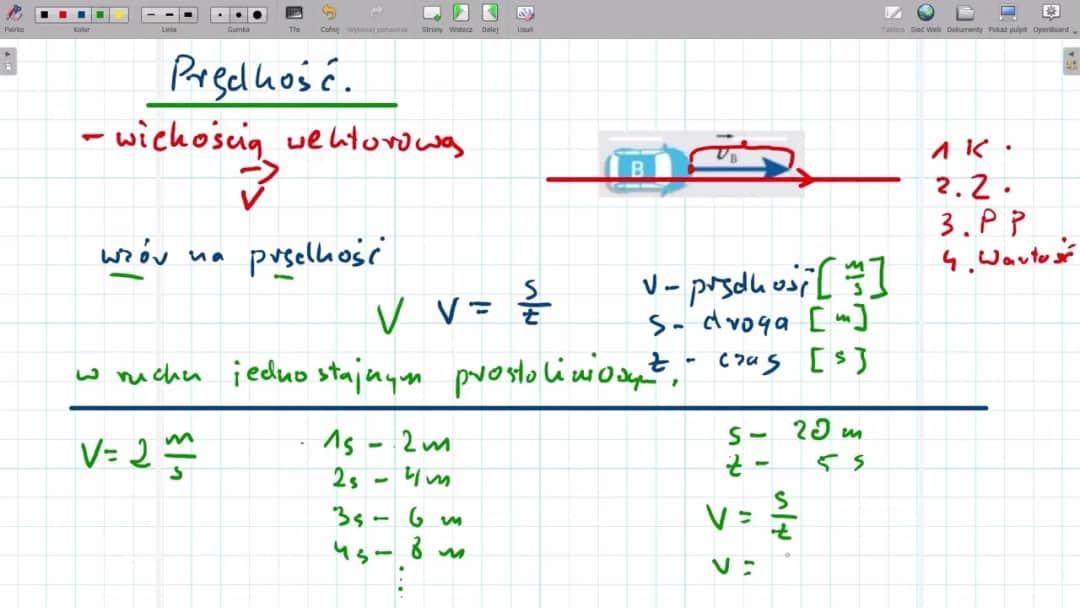 Piórko
Kolor
Linia
Gumka
Tło
Cofnij
Wykonaj ponownie
Strony
Wstecz
Dalej
Usuń
Tablica
Sieć Web
Dokumenty
Pokaż pulpit
OpenBoard
Prędkość.
- wielkością wektorową
V
B
v B
1 K.
2. Z.
3. P P
4. Wartość
wzór na prędkość
V V = s/t
v - prędkość [m/s]
s - droga [m]
t - czas [s]
w ruchu jednostajnym prostoliniowym.
V = 2 m/s
1s - 2m
2s - 4m
3s - 6 m
4s - 8 m
⋮
s - 20 m
t - 5 s
V = s/t
V =